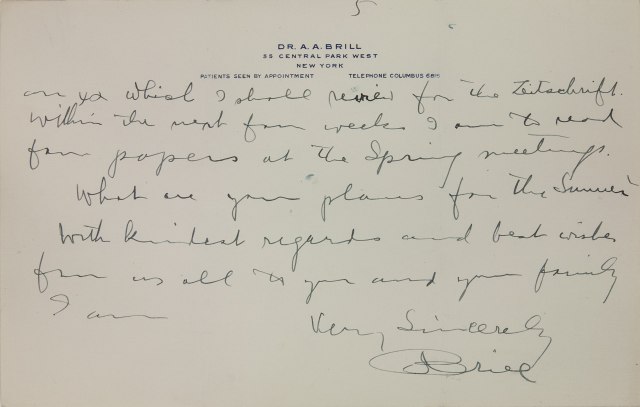 5
DR. A. A. BRILL
55 CENTRAL PARK WEST
NEW YORK
PATIENTS SEEN BY APPOINTMENT TELEPHONE COLUMBUS 6815
on which I shall review for the Zeitschrift.
Within the next four weeks I am to read
four papers at the Spring meetings.
What are your plans for the Summer
With kindest regards and best wishes
from us all to you and your family
I am
Very Sincerely
ABrill